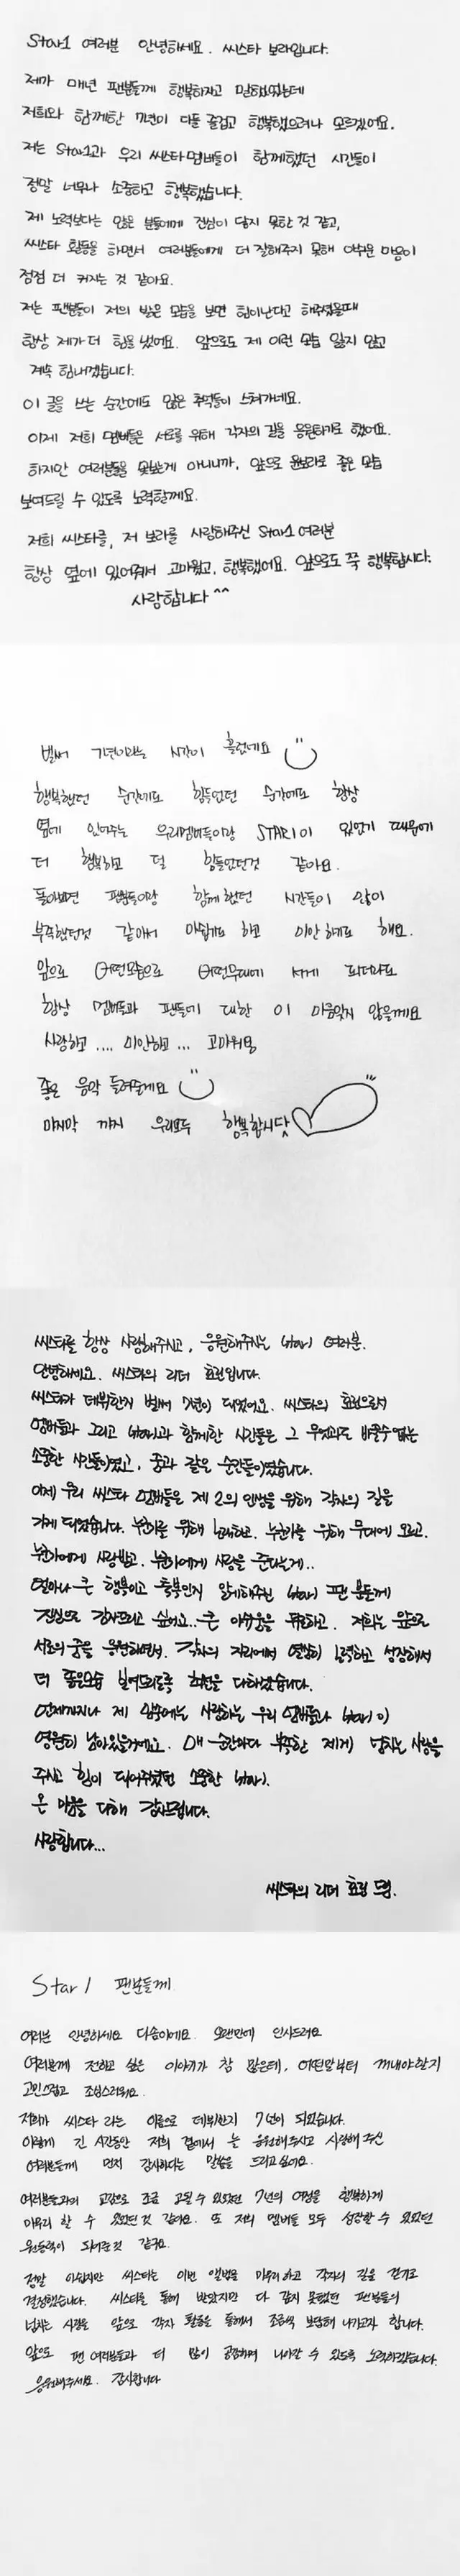 Star1 여러분 안녕하세요. 씨스타 보라입니다.
제가 매년 팬분들께 행복하자고 말했었는데
저희와 함께한 7년이 다들 즐겁고 행복했으려나 모르겠어요.
저는 Star1과 우리 씨스타 멤버들이 함께했던 시간들이
정말 너무나 소중하고 행복했습니다.
제 노력보다는 많은 분들에게 진심이 닿지 못한 것 같고,
씨스타 활동을 하면서 여러분들에게 더 잘해주지 못해 아쉬운 마음이
점점 더 커지는 것 같아요.
저는 팬분들이 저의 밝은 모습을 보면 힘이난다고 해주셨을때
항상 제가 더 힘을 냈어요. 앞으로도 제 이런 모습 잃지 않고
계속 힘내겠습니다.
이 글을 쓰는 순간에도 많은 추억들이 스쳐가네요.
이제 저희 멤버들은 서로를 위해 각자의 길을 응원하기로 했어요.
하지만 여러분들을 못보는게 아니니까, 앞으로 윤보라로 좋은 모습
보여드릴 수 있도록 노력할게요.
저희 씨스타를, 저 보라를 사랑해주신 Star1 여러분
항상 옆에 있어줘서 고마웠고, 행복했어요. 앞으로도 쭉 행복합시다.
사랑합니다 ^^
벌써 7년이라는 시간이 흘렀네요
행복했던 순간에도 힘들었던 순간에도 항상
옆에 있어주는 우리멤버들이랑 STAR1이 있었기 때문에
더 행복하고 덜 힘들었던것 같아요.
돌아보면 팬분들이랑 함께 했던 시간들이 많이
부족했던것 같아서 아쉽기도 하고 미안하기도 해요.
앞으로 어떤모습으로 어떤무대에 서게 되더라도
항상 멤버들과 팬들에 대한 이 마음잊지 않을께요
사랑하고 .... 미안하고 ... 고마워요
좋은 음악 들려줄게요
마지막 까지 우리모두 행복합시닷
씨스타를 항상 사랑해주시고, 응원해주시는 star1 여러분.
안녕하세요. 씨스타의 리더 효린입니다.
씨스타가 데뷔한지 벌써 7년이 되었어요. 씨스타의 효린으로서
멤버들과 그리고 star1과 함께한 시간들은 그 무엇과도 바꿀수 없는
소중한 시간들이였고, 꿈과 같은 순간들이였습니다.
이제 우리 씨스타 멤버들은 제 2의 인생을 위해 각자의 길을
가게 되었습니다. 누군가를 위해 노래하고. 누군가를 위해 무대에 오르고.
누군가에게 사랑받고. 누군가에게 사랑을 준다는게..
얼마나 큰 행복이고 축복인지 알게해주신 star1 팬 분들께
진심으로 감사드리고 싶어요.. 큰 아쉬움을 뒤로하고. 저희는 앞으로
서로의 꿈을 응원하면서. 각자의 자리에서 열심히 노력하고 성장해서
더 좋은모습 보여드리도록 최선을 다하겠습니다.
언제까지나 제 맘속에는 사랑하는 우리 멤버들과 star1이
영원히 남아있을거에요. 매 순간마다 부족한 제게 넘치는 사랑을
주시고 힘이 되어주셨던 소중한 star1.
온 마음을 다해 감사드립니다.
사랑합니다...
씨스타의 리더 효린 드림.
Star1 팬분들께
여러분 안녕하세요 다솜이에요. 오랜만에 인사드려요
여러분께 전하고 싶은 이야기가 참 많은데, 어떤말부터 꺼내야할지
고민스럽고 조심스러워요.
저희가 씨스타 라는 이름으로 데뷔한지 7년이 되었습니다.
이렇게 긴 시간동안 저희 곁에서 늘 응원해주시고 사랑해 주신
여러분들께 먼저 감사하다는 말씀을 드리고 싶어요.
여러분들과의 교감으로 조금 고될 수 있었던 7년의 여정을 행복하게
마무리 할 수 있었던 것 같아요. 또 저희 멤버들 모두 성장할 수 있었던
원동력이 되어준것 같구요.
정말 아쉽지만 씨스타는 이번 앨범을 마무리하고 각자의 길을 걷기로
결정했습니다. 씨스타를 통해 받았지만 다 갚지 못했던 팬분들의
넘치는 사랑을 앞으로 각자 활동을 통해서 조금씩 보답해 나가고자 합니다.
앞으로 팬 여러분들과 더 많이 공감하며 나아갈 수 있도록 노력하겠습니다.
응원해주세요. 감사합니다